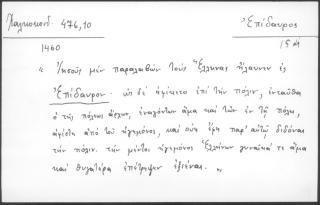 Χαλκοκονδ. 476,10 Ἐπίδαυρος
1460
" Ἰησοῦς μὲν παραλαβὼν τοὺς Ἕλληνας ἤλαυνεν ἐς
Ἐπίδαυρον. ὡς δὲ ἀφίκετο ἐπὶ τὴν πόλιν, ἐνταῦθα
ὁ τῆς πόλεως ἄρχων, ἐναγόντων ἅμα καὶ τῶν ἐν τῇ πόλει,
ἀφίστη ἀπὸ τοῦ ἡγεμόνος, καὶ οὐκ ἔφη παρ' αὐτῷ διδόναι
τὴν πόλιν. τὴν μέντοι ἡγεμόνος Ἑλλήνων γυναῖκά τε ἅμα
καὶ θυγατέρα ἐπέτρεψεν ἐξιέναι. "